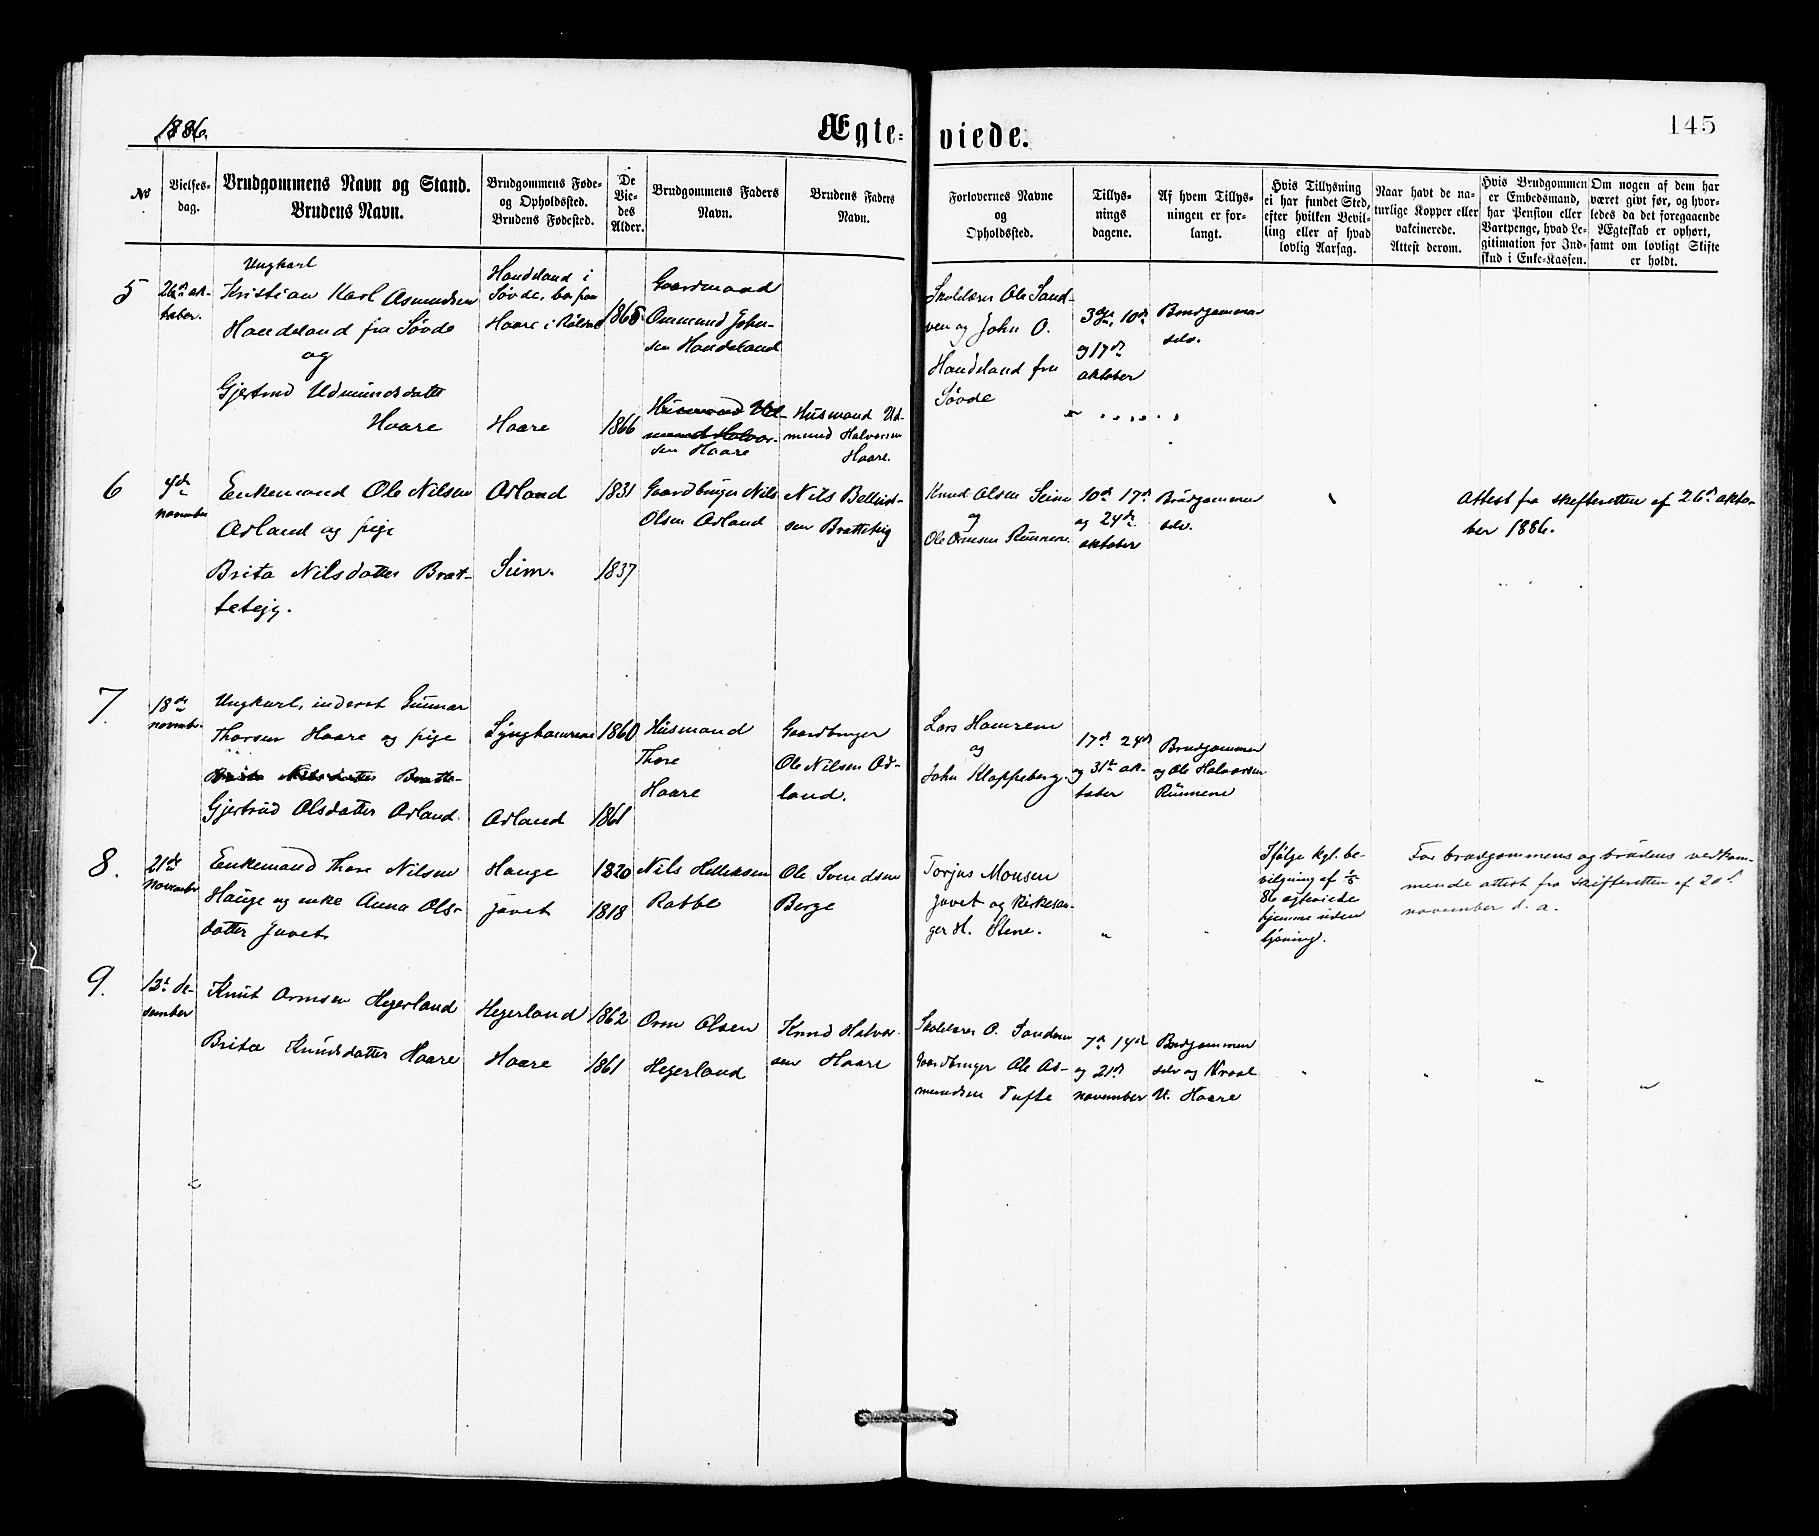 1886.
Ægte- viede.
145
No
Vielses-
dag.
Brudgommens Navn og Stand.
Brudens Navn.
Brudgommens Føde-
og Opholdssted.
Brudens Fødested.
De
Vie-
des
Alder.
Brudgommens Faders
Navn.
Brudens Faders
Navn.
Forlovernes Navne
og
Opholdssted.
Tillys-
nings
dagene.
Af hvem Tillys-
ningen er for-
langt.
Hvis Tillysning
ei har fundet Sted,
efter hvilken Bevil-
ling eller af hvad
lovlig Aarsag.
Naar havt de na-
turlige Kopper eller
vakcinerede.
Attest derom.
Hvis Brudgommen
er Embedsmand,
har Pension eller
Vartpenge, hvad Le-
gitimation for Ind-
skud i Enke-Kassen.
Om nogen af dem har
været givt før, og hvor-
ledes da det foregaaende
Ægteskab er ophørt,
samt om lovligt Skifte
er holdt.
5
26de ok-
tober.
Ungkarl
Kristian Karl Asmundsen
Handeland fra Søvde
og
Gjertrud Udmundsdatter
Haare
Handeland i
Søvde, bor paa
Haare i Røldal
Haare
1865
1866
Gaardmand
Ommund John-
sen Handeland
Husmand Ud-
mund Halvor-
sen Haare
Husmand Ud-
mund Halvorsen
Haare.
Skolelærer Ole Sand-
ven og John O.
Handeland fra
Søvde
3die, 10de
og 17de
oktober
Brudgommen
selv.
6
7de
november
Enkemand Ole Nilsen
Arland og pige
Brita Nilsdatter Brat-
tetejg.
Arland
Seim.
1831
1837
Gaardbruger Nils
Olsen Arland
Nils
sen Bratteteig
Knud Olsen Seim
og
Ole Ormsen Rünnene
10de 17de
og 24de
oktober
Brudgommen
selv.
Attest fra skifteretten af 26de okto-
ber 1886.
7.
18de
november
Ungkarl, inderst Gunnar
Thorsen Haare og pige
Brita Nilsdatter Bratte-
Gjertrud Olsdatter Arland.
Lynghamrene
Arland
1860
1861
Husmand
Thore
Haare
Gaardbruger
Ole Nilsen Ar-
land.
Lars Hamrene
og
John Kloppeberg.
17de 24de
og 31te ok-
tober
Brudgommen
og Ole Halvorsen
Rünnene
8.
21de
november
Enkemand Thore Nilsen
Hauge og enke Anna Ols-
datter Juvet.
Hauge
Juvet
1820
1818
Nils Helleksen
Rabbe
Ole Svendsen
Berge
Torjus Monsen
Juvet og kirkesan-
ger H. Stene.
Ifølge kgl. be-
vilgning af
86 ægteviede
hjemme uden
lysning.
For brudgommens og brudens vedkom-
mende attest fra skifteretten af 20de
november d. a.
9.
12te de-
sember
Knut Ormsen Hegerland
Brita Knudsdatter Haare
Hegerland
Haare
1862
1861
Orm Olsen
Hegerland
Knud Halvor-
sen Haare
Skolelærer O. Sandven
Gaardbruger Ole As-
mundsen Tufte
7de 14de
og 21de
november
Brudgommen
selv og Vraal
U. Haare